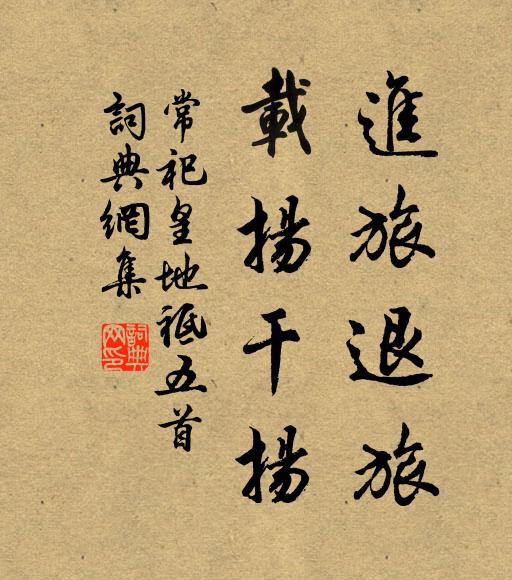 進旅退旅
載揚干揚
常祀皇地祗五首
詞典網集
詞典網印